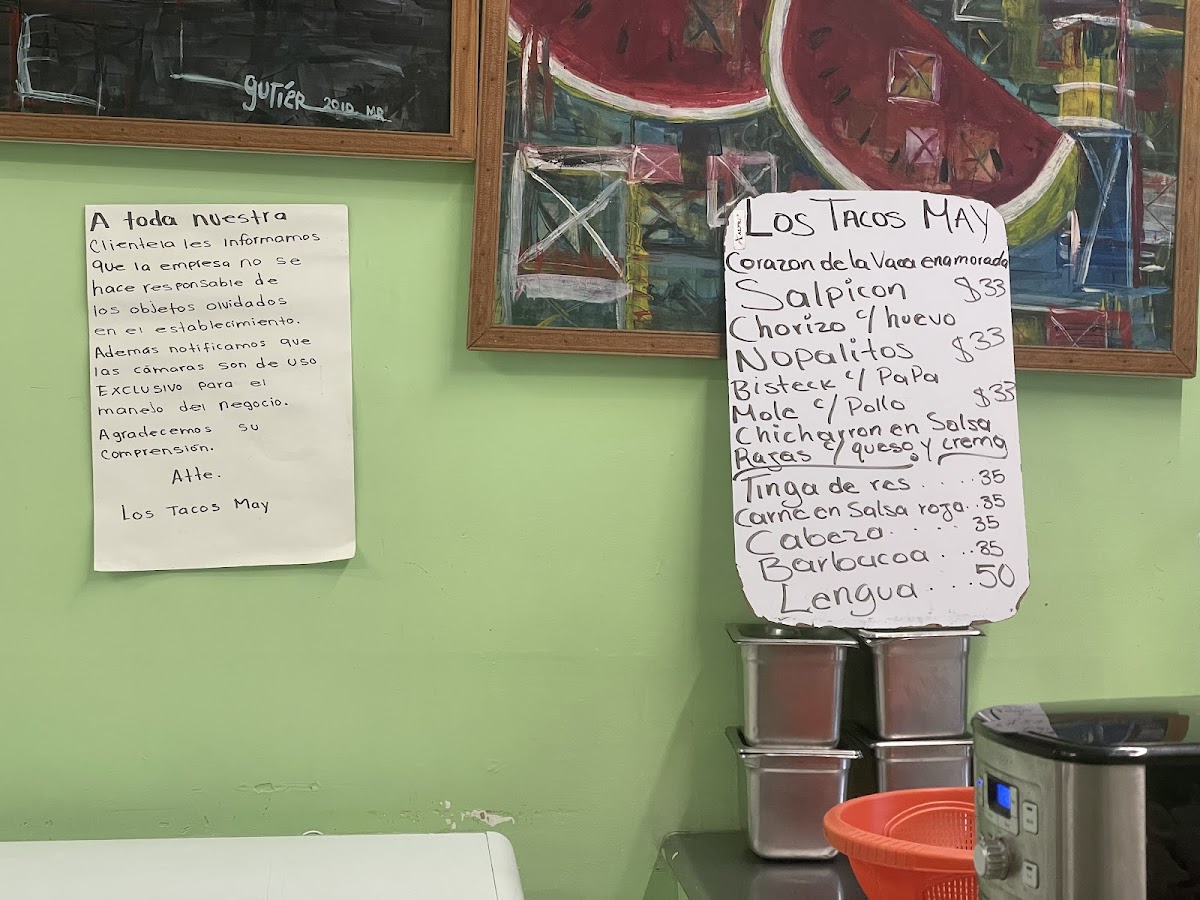 gutiér 2010 MR
A toda nuestra
Clientela les Informamos
que la empresa no se
hace responsable de
los objetos olvidados
en el establecimiento.
Además notificamos que
las cámaras son de uso
EXCLUSIVO para el
manejo del negocio.
Agradecemos su
comprensión.
Atte.
Los Tacos May
Los Tacos May
Corazon de la Vaca enamorada
Salpicon $33
Chorizo c/ huevo
Nopalitos $33
Bisteck c/ PaPa
Mole c/ Pollo $33
Chicharron en Salsa
Rajas c/ queso y crema
Tinga de res ..... 35
Carne en Salsa roja.. 35
Cabeza. . . . 35
Barbacoa . ... 35
Lengua . ... 50